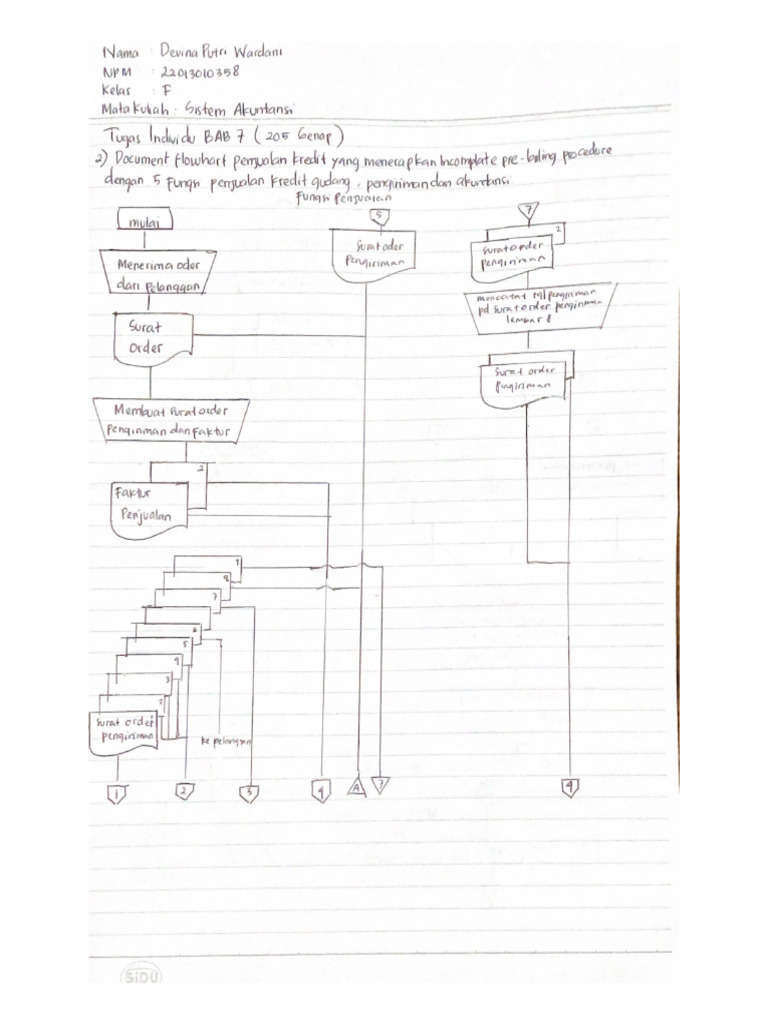 Nama : Devina Putri Wardani
NPM : 22013010358
Kelas : F
Mata Kuliah : Sistem Akuntansi
Tugas Individu BAB 7 ( 205 Genap )
2) Document flowhart penjualan kredit yang menerapkan Incomplate pre-billing procedure
dengan 5 Fungsi penjualan kredit gudang, pengiriman dan akuntansi
Fungsi Penjualan
mulai
Menerima oder
dari pelanggan
Surat
Order
Membuat surat order
pengiriman dan Faktur
2
Faktur
Penjualan
9
8
7
6
5
4
3
2
1
Surat order
pengiriman
ke pelanggan
1
2
3
4
A
7
5
Surat oder
Pengiriman
7
2
Surat order
pengiriman
mencatat tgl pengiriman
pd surat order pengiriman
lembar 8
Surat order
pngiriman
4
SiDU